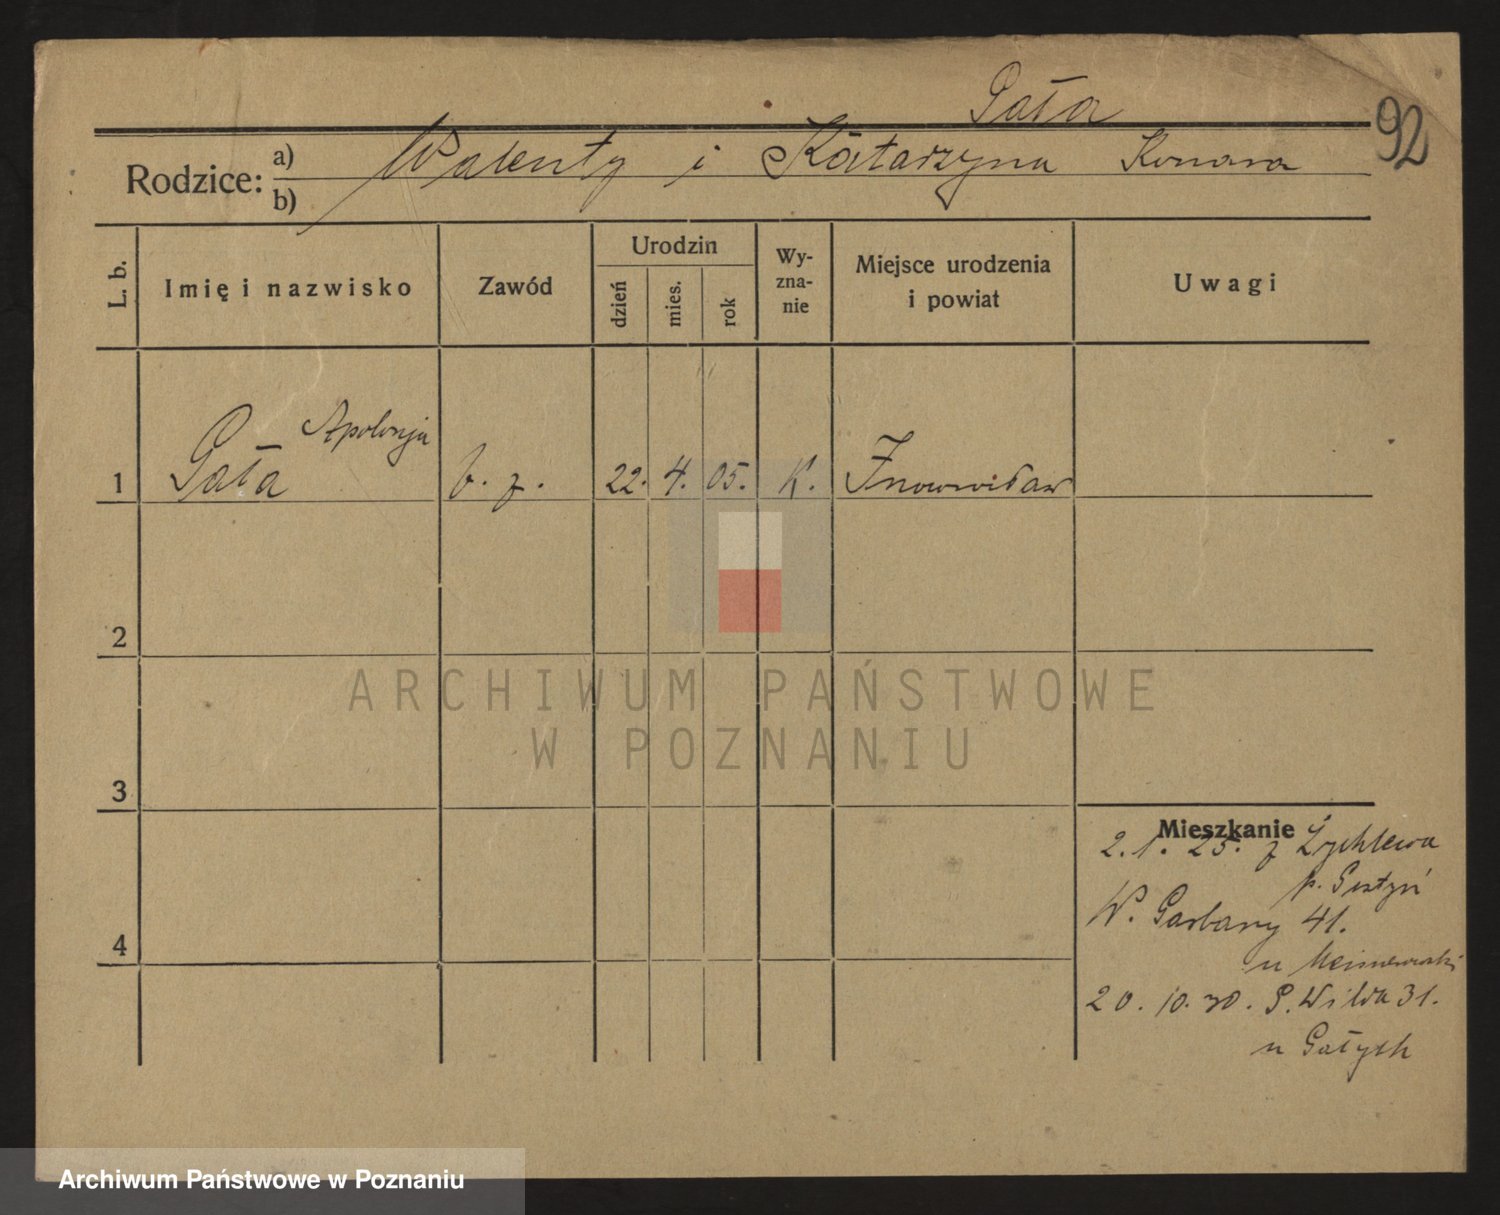 Gała
92
Rodzice: a) Walenty i Katarzyna
b)
L. b.
Imię i nazwisko
Zawód
Urodzin
dzień
mies.
rok
Wy-
zna-
nie
Miejsce urodzenia
i powiat
Uwagi
Apolonja
1 Gała b. z. 22. 4. 05. K. Inowrocław
2
3
4
Mieszkanie
2. 1. 25. z Żychlewa
p. Gostyń
W. Garbary 41.
u
20. 10. 30. G. Wilda 31.
u Gałych
ARCHIWUM PAŃSTWOWE
W POZNANIU
Archiwum Państwowe w Poznaniu